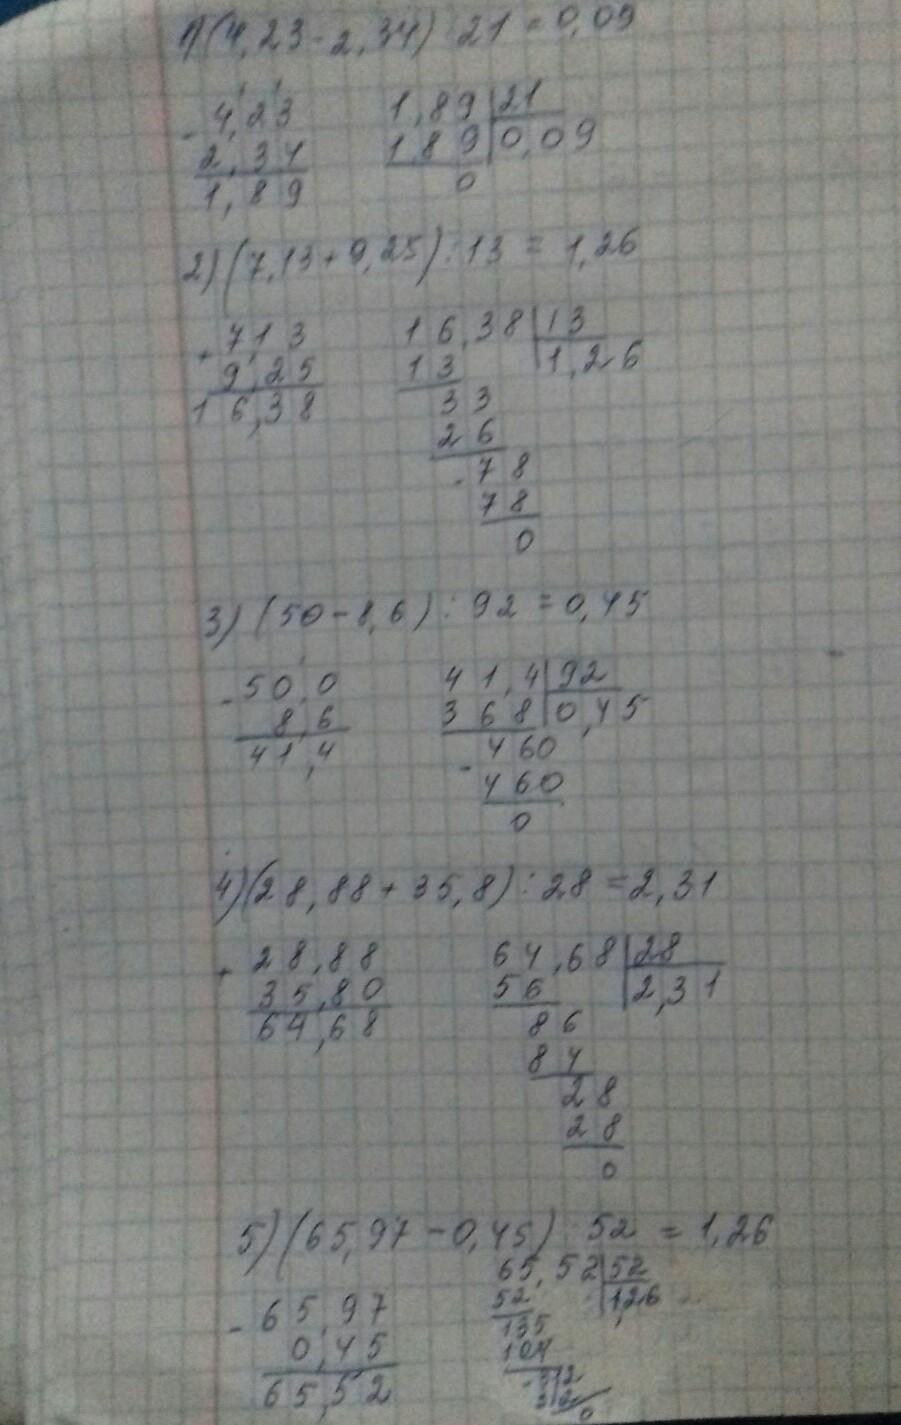 1) (4,23 - 2,34) : 21 = 0,09
- 4,23 1,89 | 21
2,34 1 8 9 | 0,09
1,89 0
2) (7,13 + 9,25) : 13 = 1,26
+ 7,13 16,38 | 13
9,25 13 | 1,26
16,38 33
26
- 78
78
0
3) (50 - 8,6) : 92 = 0,45
- 50,0 41,4 | 92
8,6 368 | 0,45
41,4 - 460
460
0
4) (28,88 + 35,8) : 28 = 2,31
+ 28,88 64,68 | 28
35,80 56 | 2,31
64,68 86
84
28
28
0
5) (65,97 - 0,45) : 52 = 1,26
65,52 | 52
- 65,97 52 | 1,26
0,45 135
65,52 104
- 312
312
0